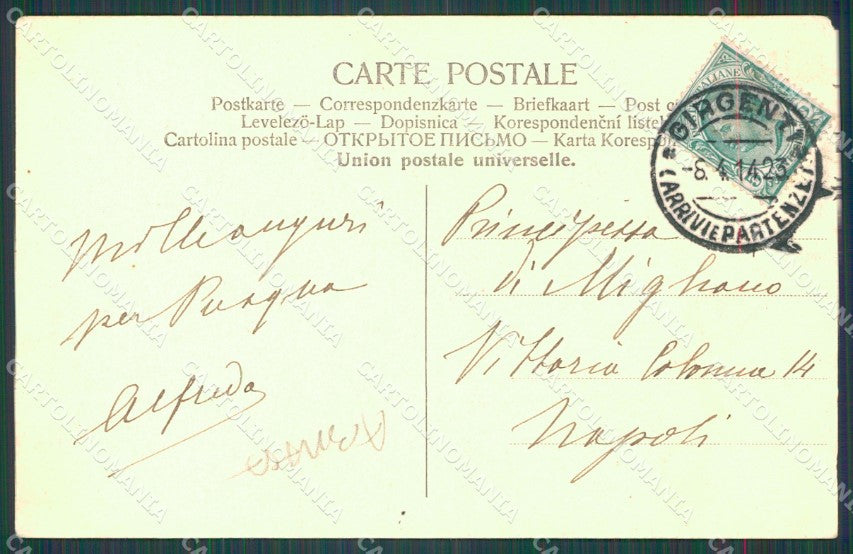 CARTE POSTALE
Postkarte — Correspondenzkarte — Briefkaart — Post
Levelezö-Lap — Dopisnica — Korespondenční lístek
Cartolina postale — ОТКРЫТОЕ ПИСЬМО — Karta
Union postale universelle.
GIRGENTI
-8.4.14.23
(ARRIVI E PARTENZE)
Mille auguri
per Pasqua
Alfredo
Principessa
di Migliano
Vittoria Colonna 14
Napoli
CARTOLINOMANIA